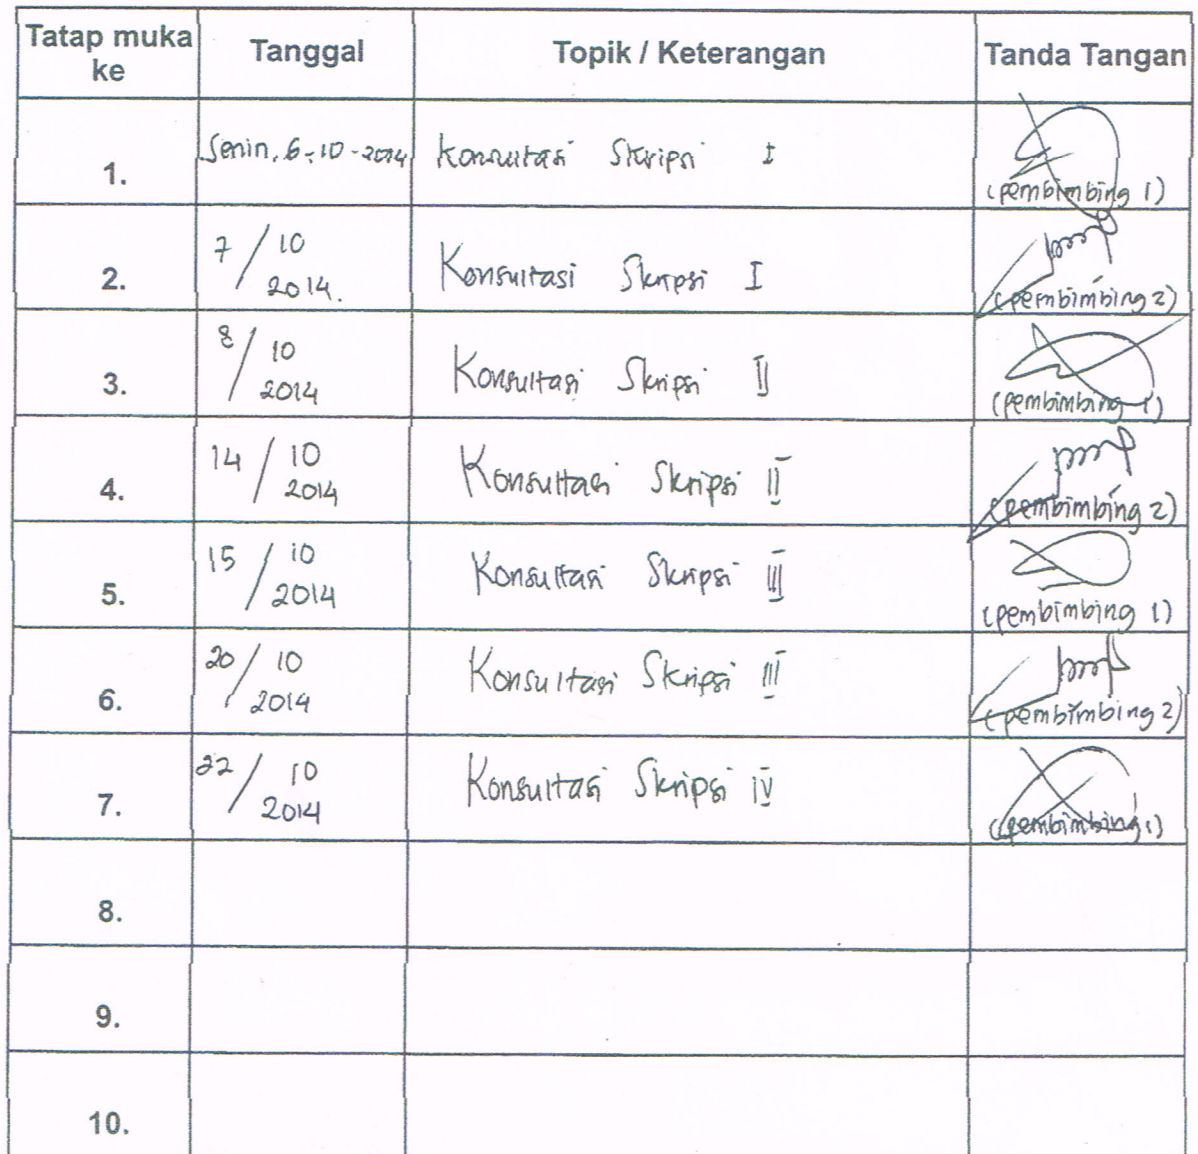 Tatap muka ke Tanggal Topik / Keterangan Tanda Tangan
1. Senin, 6-10-2014 Konsultasi Skripsi I (pembimbing 1)
2. 7/10 2014. Konsultasi Skripsi I (pembimbing 2)
3. 8/10 2014 Konsultasi Skripsi II (pembimbing 1)
4. 14/10 2014 Konsultasi Skripsi II (pembimbing 2)
5. 15/10 2014 Konsultasi Skripsi III (pembimbing 1)
6. 20/10 2014 Konsultasi Skripsi III (pembimbing 2)
7. 22/10 2014 Konsultasi Skripsi IV (pembimbing 1)
8.
9.
10.